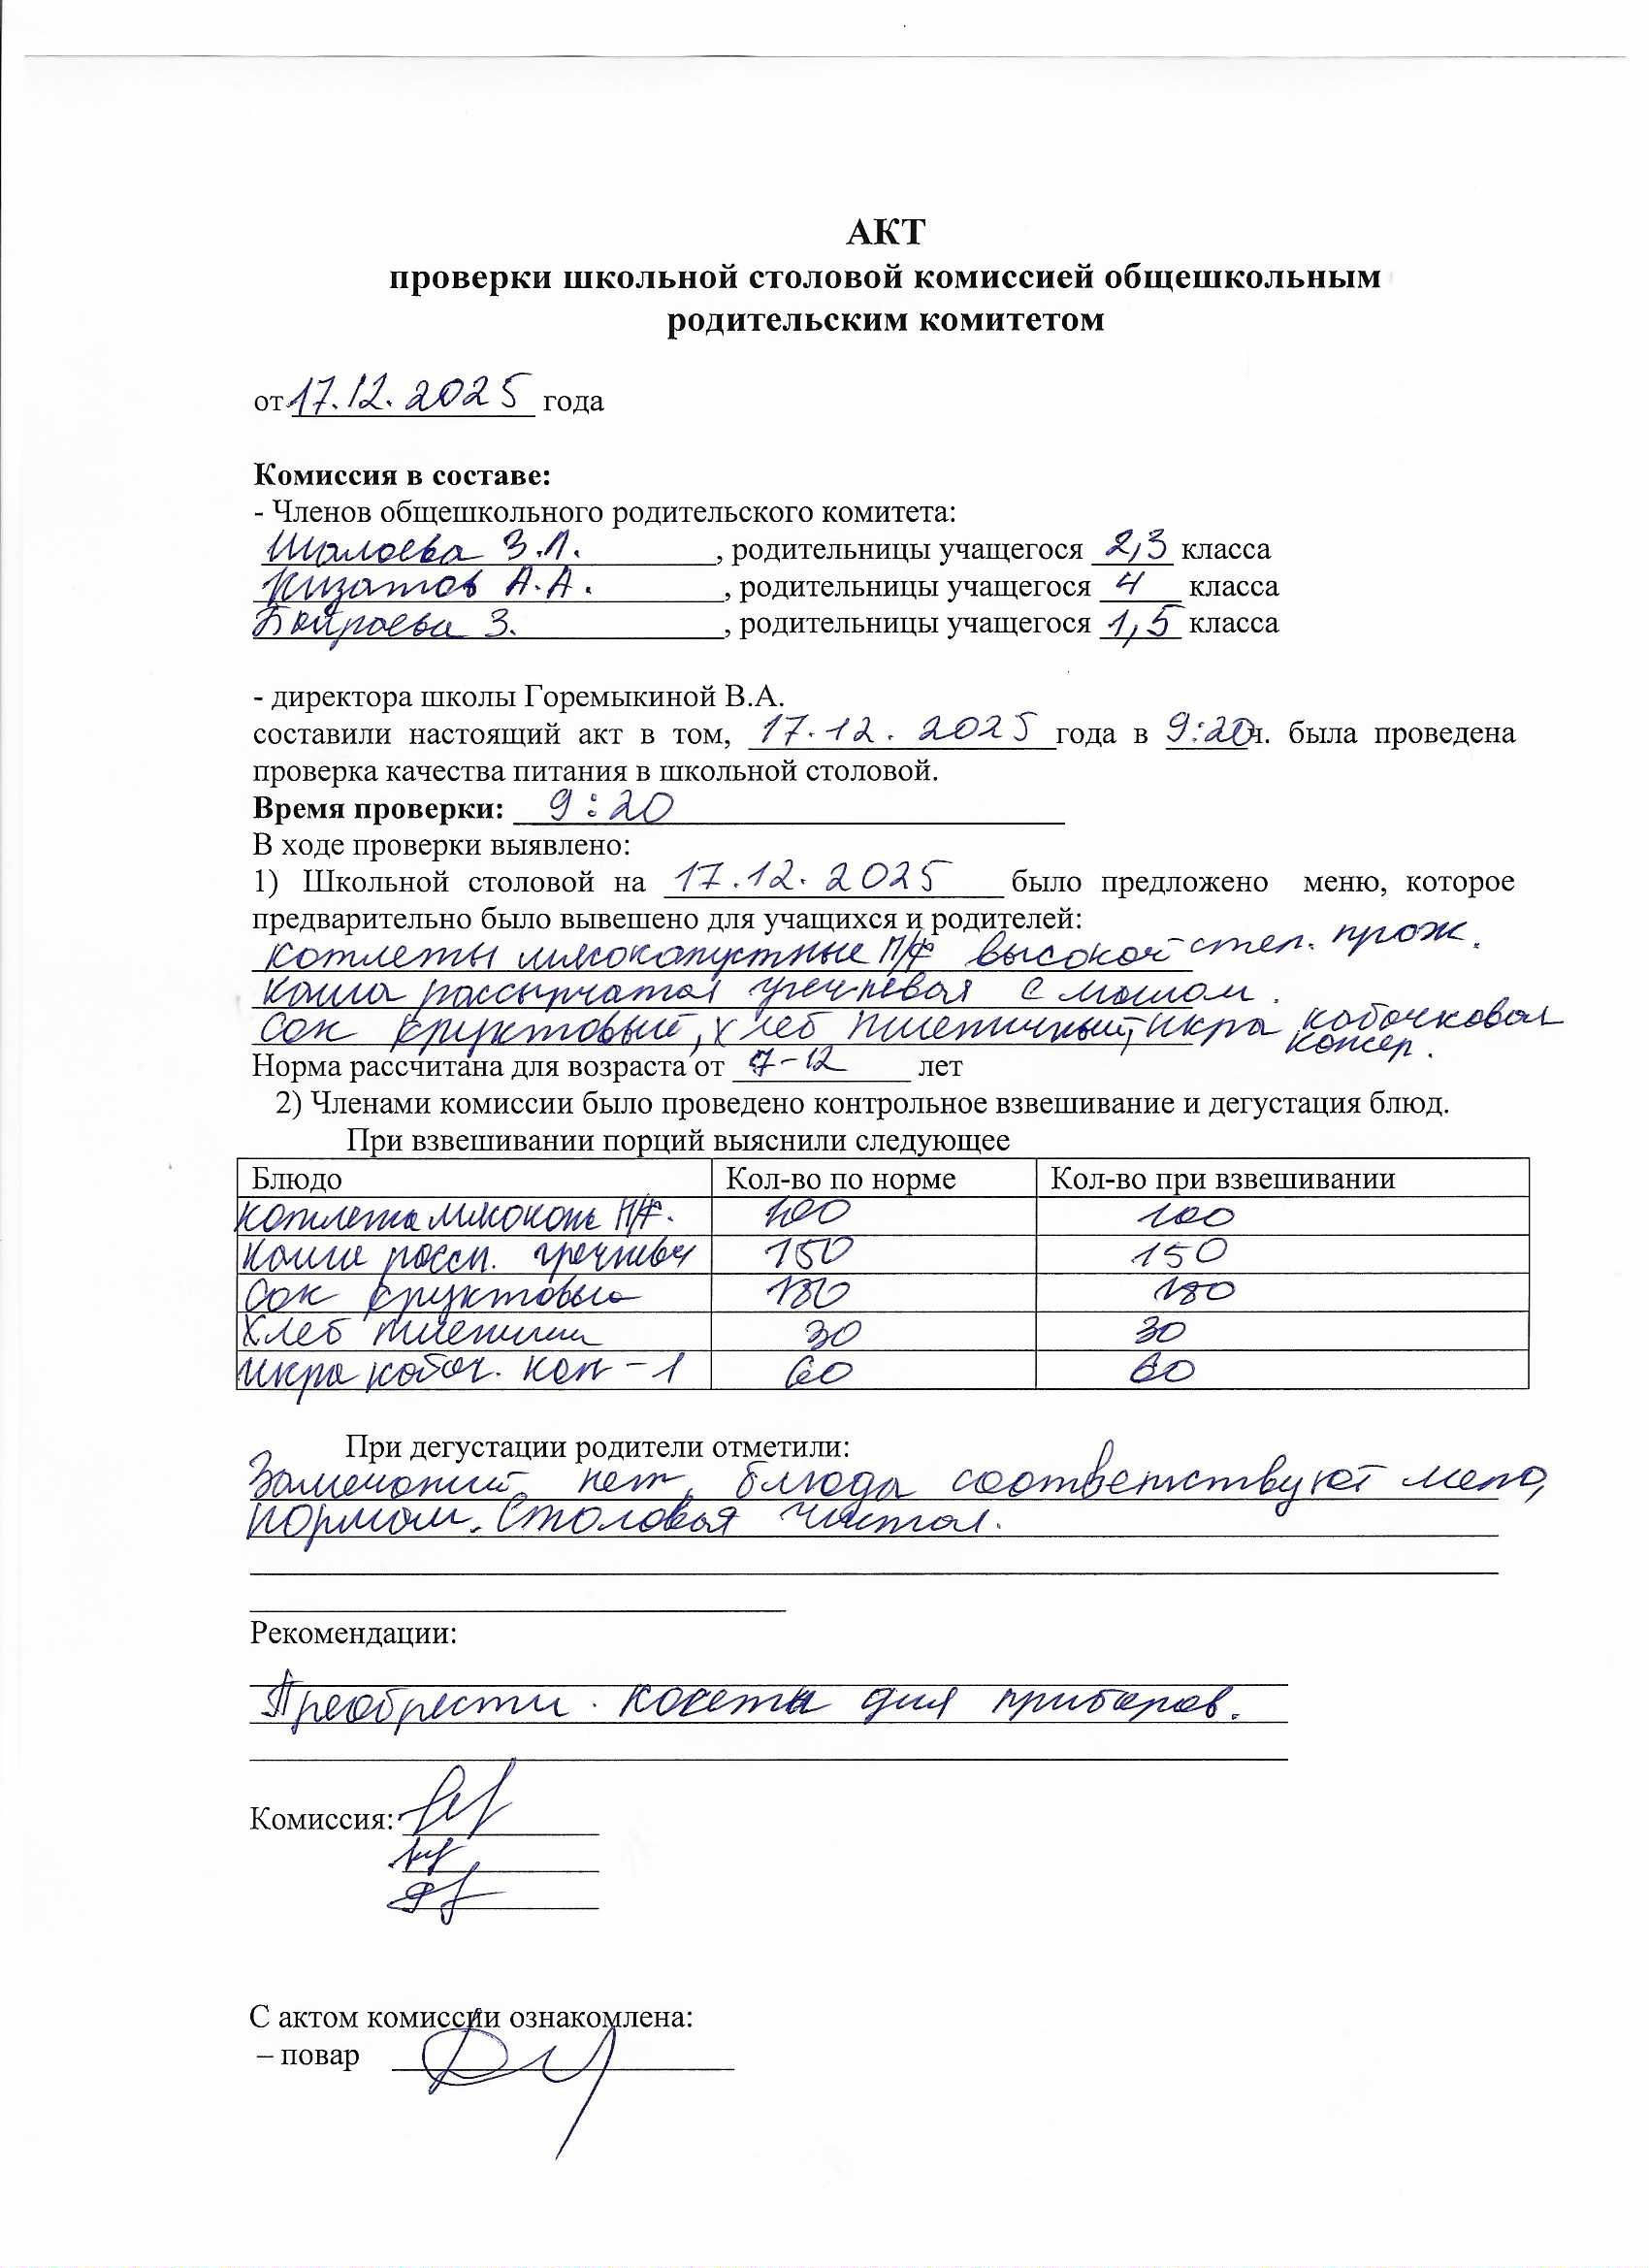 АКТ
проверки школьной столовой комиссией общешкольным
родительским комитетом
от 17.12.2025 года
Комиссия в составе:
- Членов общешкольного родительского комитета:
Шалоева З.Л. , родительницы учащегося 2,3 класса
Кизатов А.А. , родительницы учащегося 4 класса
З. , родительницы учащегося 1,5 класса
- директора школы Горемыкиной В.А.
составили настоящий акт в том, 17.12.2025 года в 9:20 ч. была проведена
проверка качества питания в школьной столовой.
Время проверки: 9:20
В ходе проверки выявлено:
1) Школьной столовой на 17.12.2025 было предложено меню, которое
предварительно было вывешено для учащихся и родителей:
котлеты мясокапустные П/ф высокой степ. прож.
каша рассыпчатая гречневая с маслом.
Сок фруктовый, хлеб пшеничный, икра кабачковая
консер.
Норма рассчитана для возраста от 7-12 лет
2) Членами комиссии было проведено контрольное взвешивание и дегустация блюд.
При взвешивании порций выяснили следующее
Блюдо Кол-во по норме Кол-во при взвешивании
котлета мясокап П/ф. 100 100
Каша рассп. гречнев 150 150
Сок фруктовый 180 180
Хлеб пшенич 30 30
Икра кабач. кон - 1 60 60
При дегустации родители отметили:
Замечаний нет, блюда соответствуют меню,
нормам. Столовая чистая.
Рекомендации:
Преобрести касеты для приборов.
Комиссия:
С актом комиссии ознакомлена:
– повар